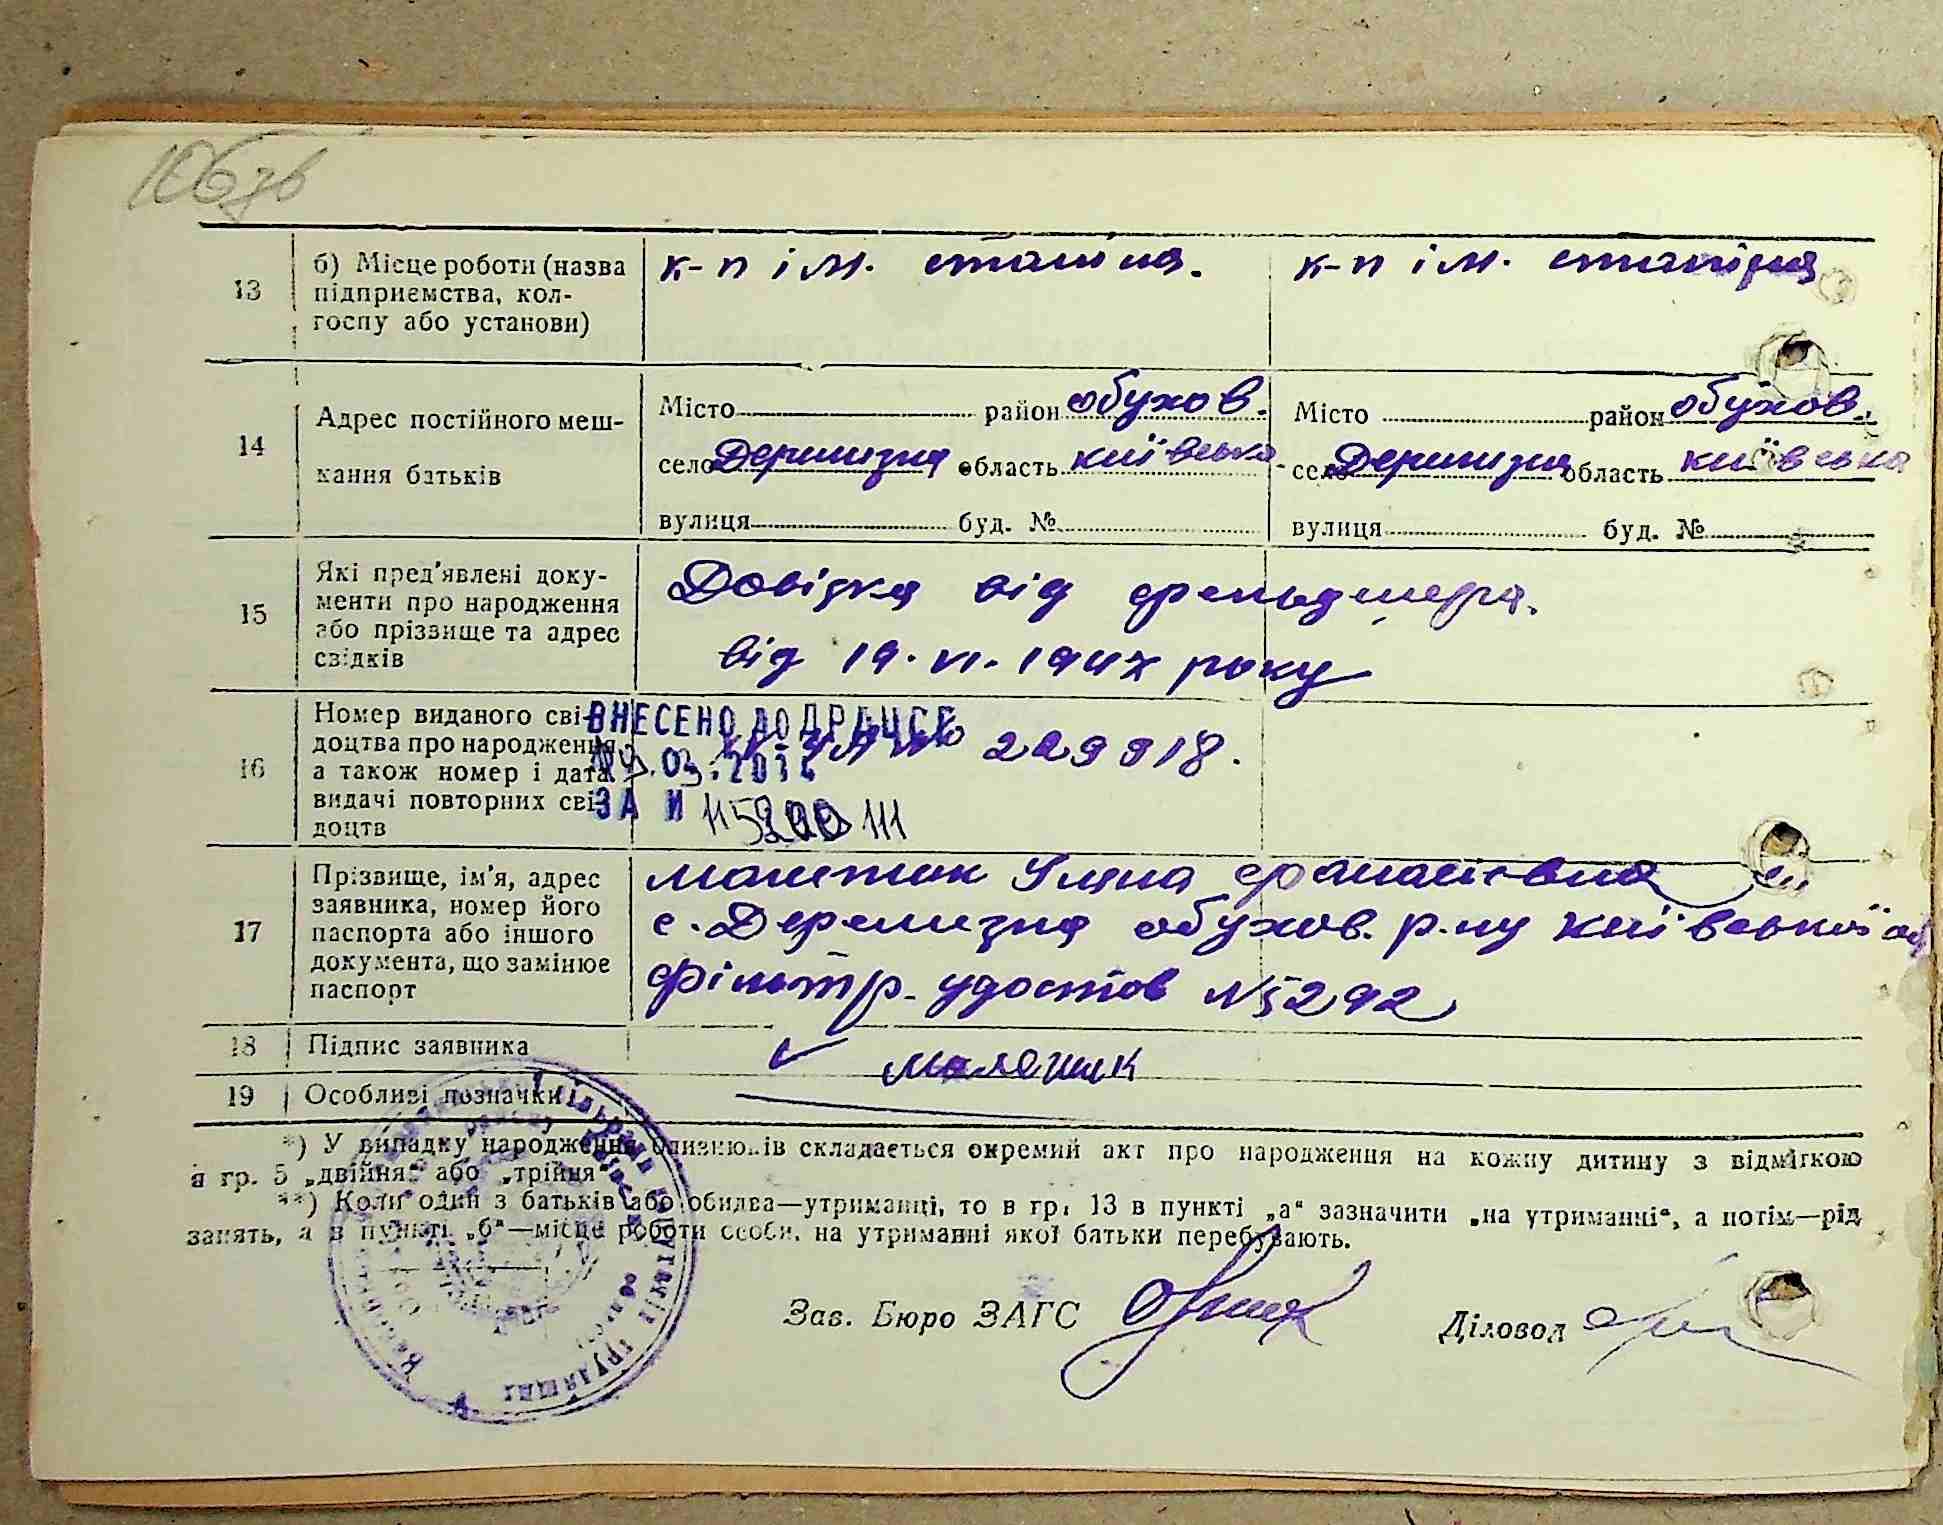 106зв
13
б) Місце роботи (назва підприємства, кол-
госпу або установи)
к-п ім. сталіна.
к-п ім. сталіна
14
Адрес постійного меш-
кання батьків
Місто район обухов.
село Деремизна область київська
вулиця буд. №
Місто район обухов.
село Деремизна область київська
вулиця буд. №
15
Які пред'явлені доку-
менти про народження
або прізвище та адрес
свідків
Довідка від фельдшера.
від 19.VI.1947 року
16
Номер виданого сві-
доцтва про народження
а також номер і дата
видачі повторних сві-
доцтв
ВНЕСЕНО ДО ДРАЦСГ
03.
ЗА №
229918.
17
Прізвище, ім'я, адрес
заявника, номер його
паспорта або іншого
документа, що замінює
паспорт
Уляна Фанасіевна
с. Деремизна обухов. р.ну київської об
фільтр. удостов №5292
18
Підпис заявника
19
Особливі позначки
*) У випадку народження близнюків складається окремий акт про народження на кожну дитину з відміткою
в гр. 5 „двійня“ або „трійня“
**) Коли один з батьків або обидва—утриманці, то в гр. 13 в пункті „а“ зазначити „на утриманні“, а потім—рід
занять, а в пункті „б“—місце роботи особи, на утриманні якої батьки перебувають.
Зав. Бюро ЗАГС
Діловод